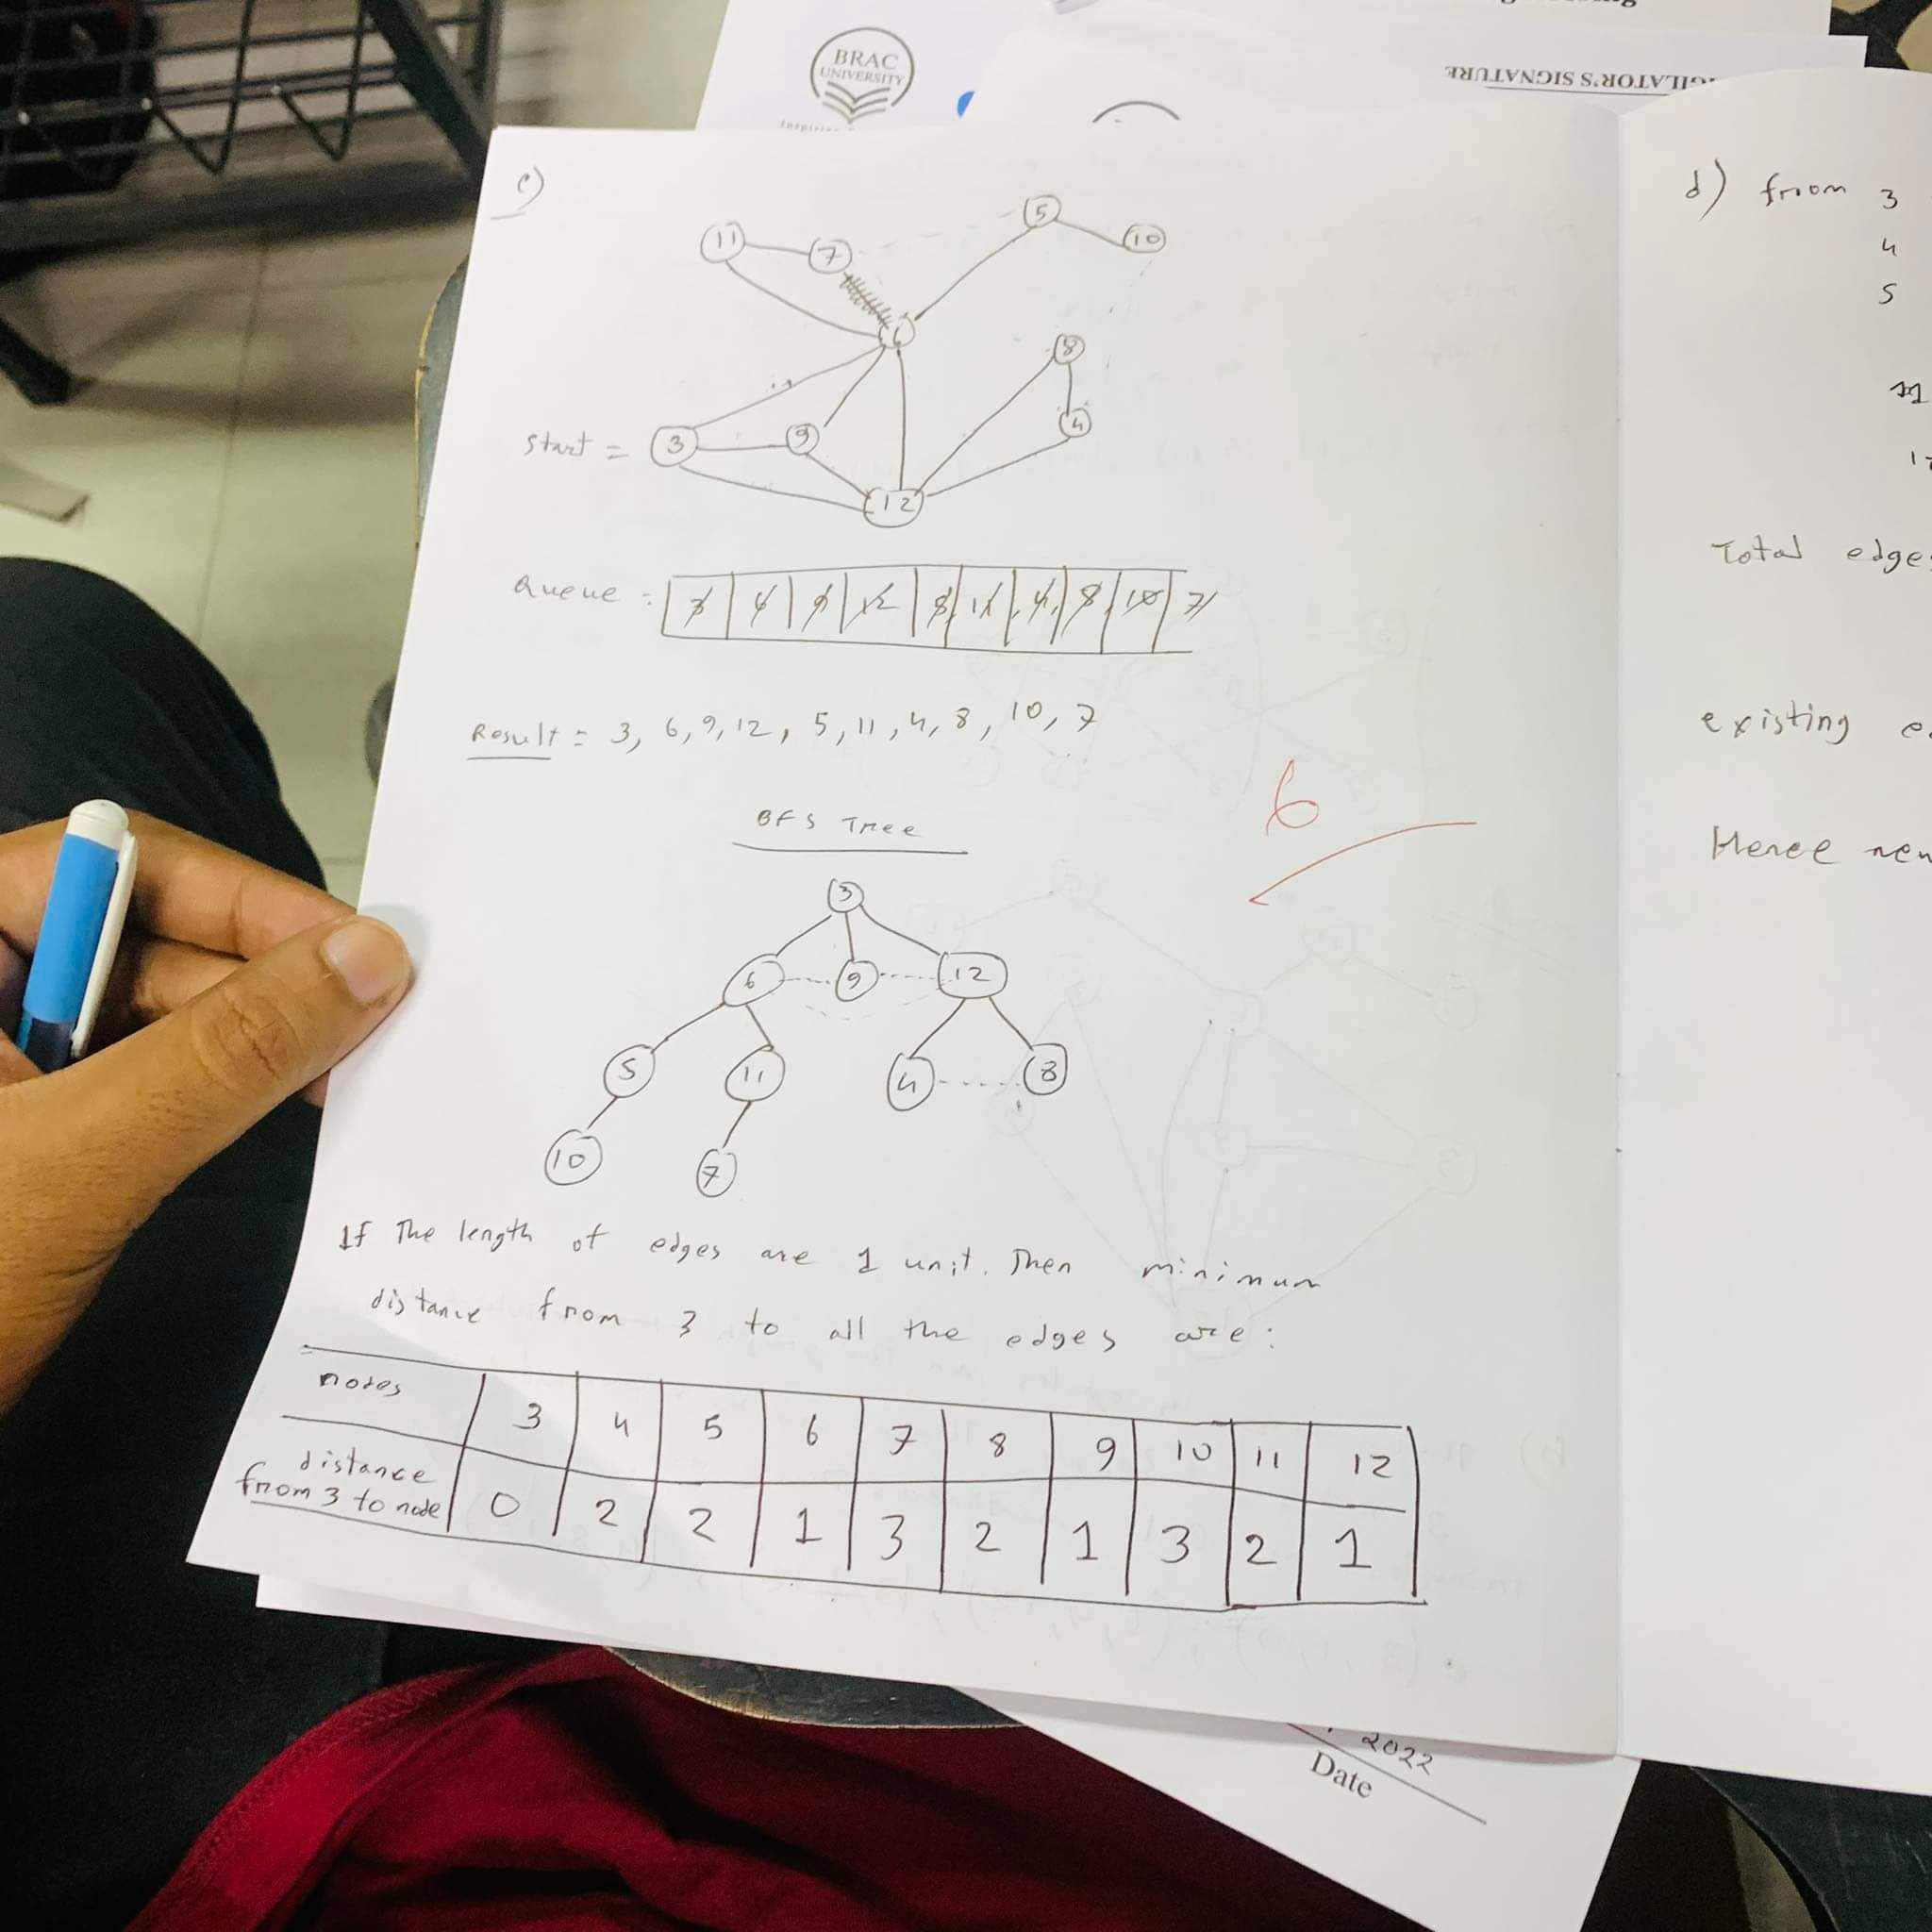 BRAC
UNIVERSITY
INVIGILATOR'S SIGNATURE
c)
11
7
5
10
6
8
4
start = 3
9
12
Queue : 3 6 9 12 5 11 4 8 10 7
Result = 3, 6, 9, 12, 5, 11, 4, 8, 10, 7
6
BFS Tree
3
6 9 12
5 11 4 8
10 7
If The length of edges are 1 unit. Then minimum
distance from 3 to all the edges are :
nodes 3 4 5 6 7 8 9 10 11 12
distance
from 3 to node 0 2 2 1 3 2 1 3 2 1
d) from 3
4
5
Total edge
existing e
Hence
2022
Date